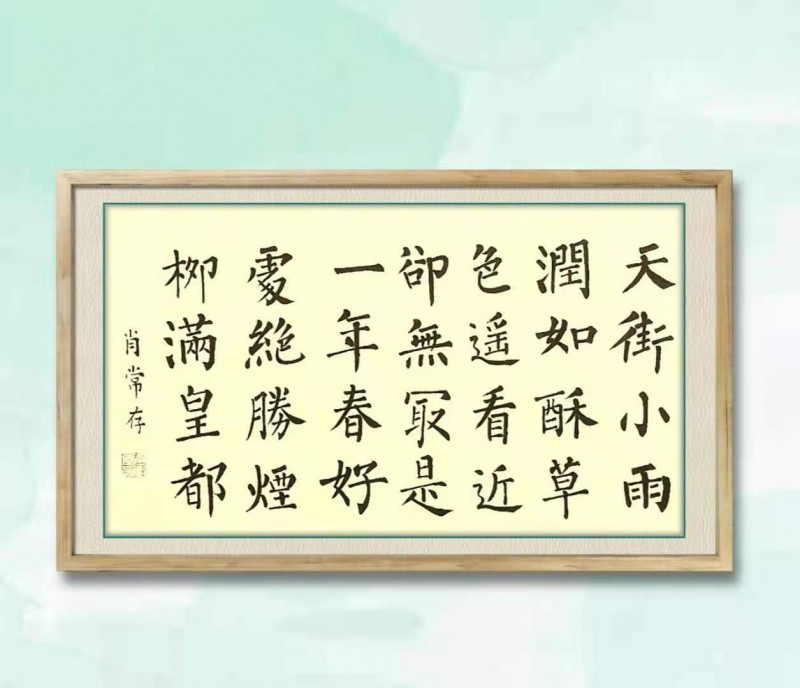 天街小雨
潤如酥草
色遥看近
卻無冣是
一年春好
處絕勝煙
柳滿皇都
肖常存